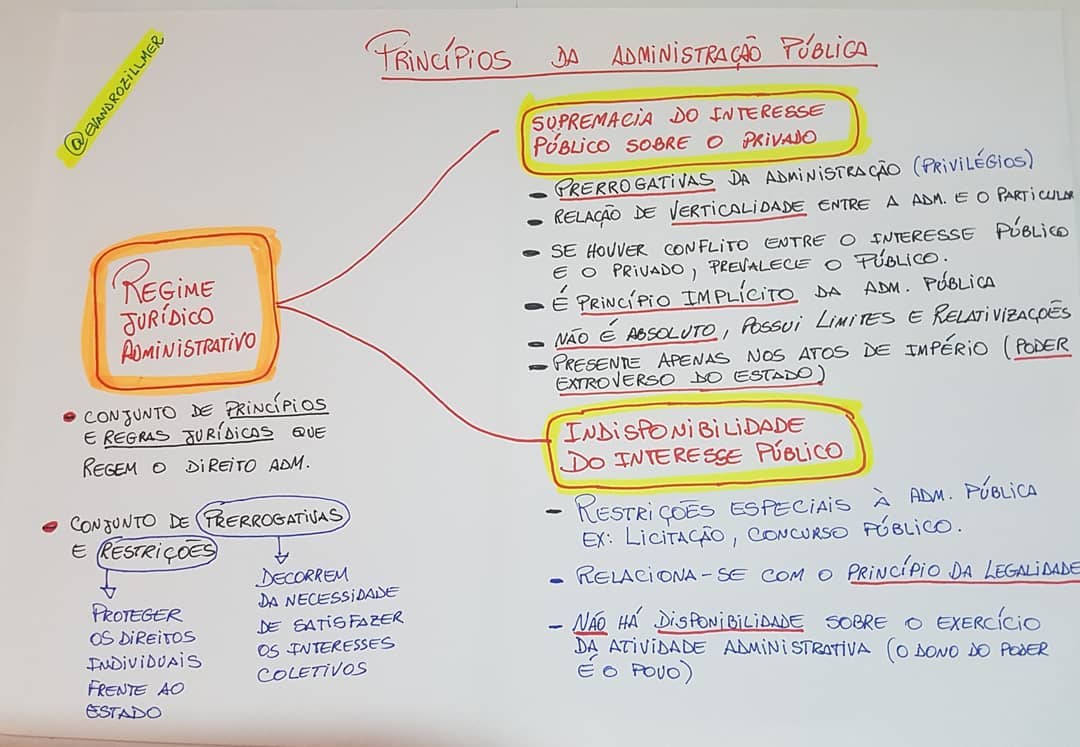 @EVANDROZILLMER
PRINCÍPIOS DA ADMINISTRAÇÃO PÚBLICA
REGIME
JURÍDICO
ADMINISTRATIVO
• CONJUNTO DE PRINCÍPIOS
E REGRAS JURÍDICAS QUE
REGEM O DIREITO ADM.
• CONJUNTO DE PRERROGATIVAS
E RESTRIÇÕES
PROTEGER
OS DIREITOS
INDIVIDUAIS
FRENTE AO
ESTADO
DECORREM
DA NECESSIDADE
DE SATISFAZER
OS INTERESSES
COLETIVOS
SUPREMACIA DO INTERESSE
PÚBLICO SOBRE O PRIVADO
- PRERROGATIVAS DA ADMINISTRAÇÃO (PRIVILÉGIOS)
- RELAÇÃO DE VERTICALIDADE ENTRE A ADM. E O PARTICULAR
- SE HOUVER CONFLITO ENTRE O INTERESSE PÚBLICO
E O PRIVADO, PREVALECE O PÚBLICO.
- É PRINCÍPIO IMPLÍCITO DA ADM. PÚBLICA
- NÃO É ABSOLUTO, POSSUI LIMITES E RELATIVIZAÇÕES
- PRESENTE APENAS NOS ATOS DE IMPÉRIO (PODER
EXTROVERSO DO ESTADO)
INDISPONIBILIDADE
DO INTERESSE PÚBLICO
- RESTRIÇÕES ESPECIAIS À ADM. PÚBLICA
EX: LICITAÇÃO, CONCURSO PÚBLICO.
- RELACIONA-SE COM O PRINCÍPIO DA LEGALIDADE
- NÃO HÁ DISPONIBILIDADE SOBRE O EXERCÍCIO
DA ATIVIDADE ADMINISTRATIVA (O DONO DO PODER
É O POVO)